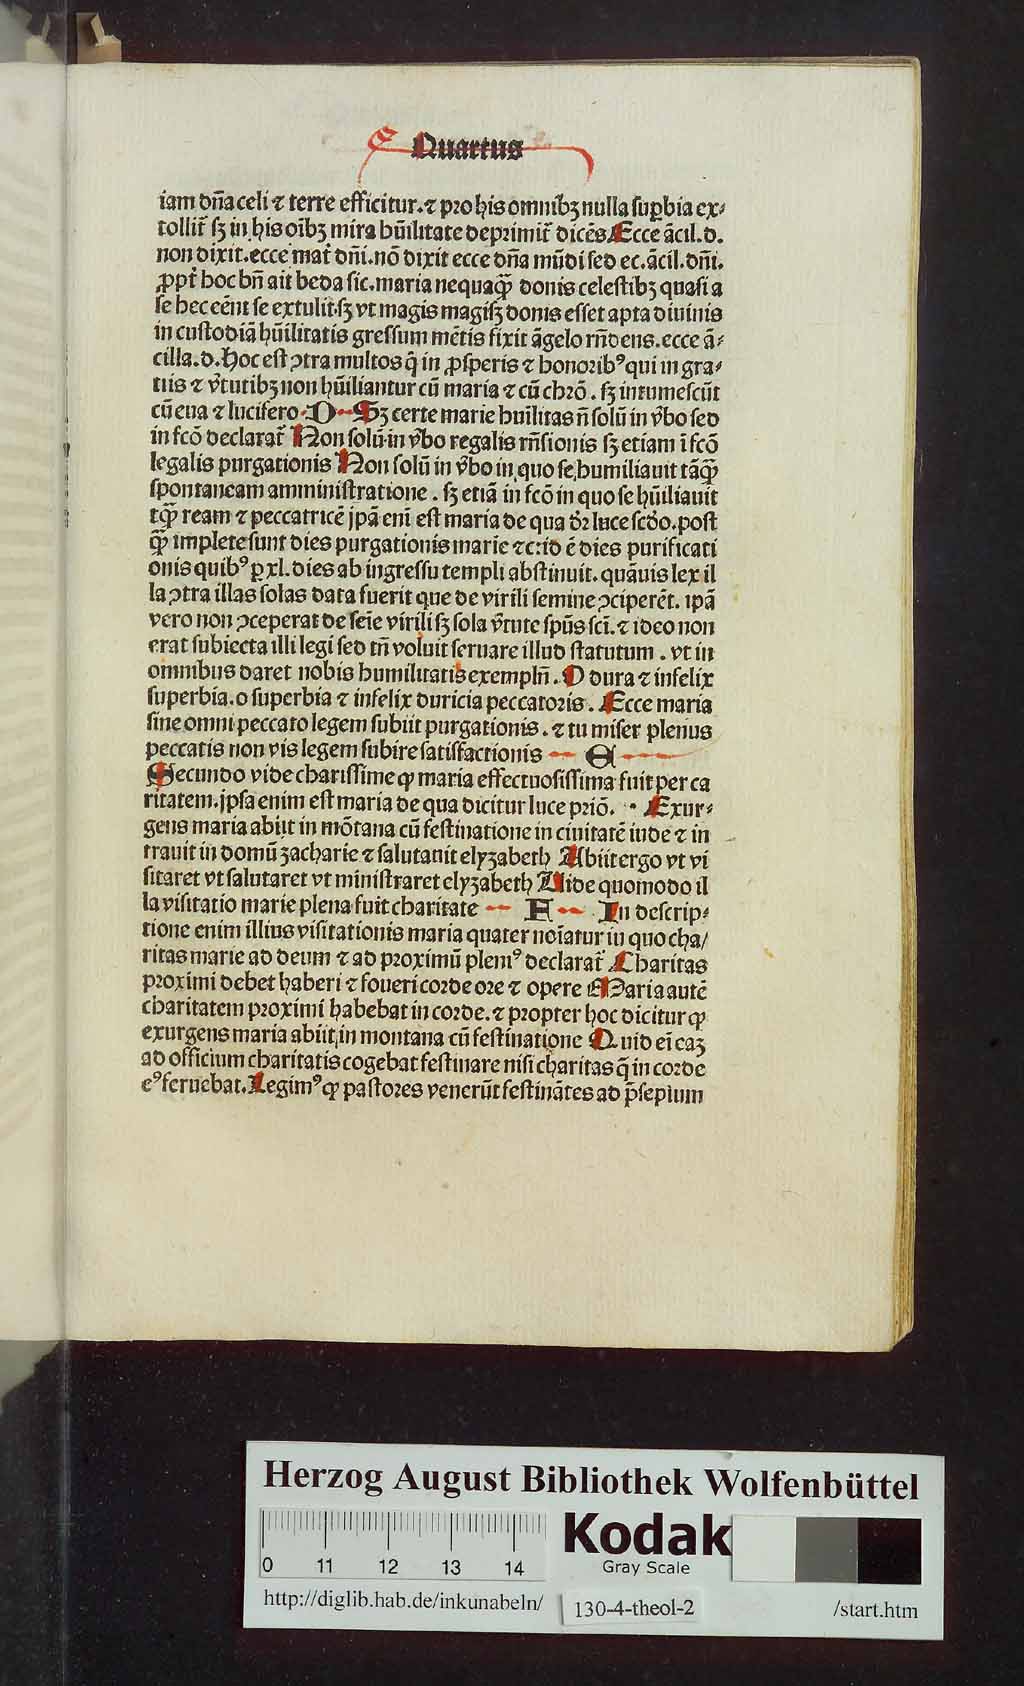 Quartus
iam dn̄a celi ⁊ terre efficitur.⁊ pro his omnibꝫ nulla suꝑbia ex⸗
tollit᷑ sꝫ in his oībꝫ mira hūilitate deprimit᷑ dicēs Ecce ācil.d.
non dixit.ecce mat᷑ dn̄i.nō dixit ecce dn̄a mūdi sed ec.ācil.dn̄i.
ꝓpt᷑ hoc bn̄ ait beda sic.maria nequaꝙ̄ donis celestibꝫ quasi a
se hec eēnt se extulit.sꝫ vt magis magisꝫ donis esset apta diuinis
in custodiā hūilitatis gressum mētis fixit āgelo rn̄dens.ecce ā⸗
cilla.d.Hoc est ↄtra multos q̄ in ꝓsperis ⁊ honoribꝰ qui in gra⸗
tiis ⁊ v̄tutibꝫ non hūiliantur cū maria ⁊ cū chrō. sꝫ intumescūt
cū eua ⁊ lucifero D Sꝫ certe marie huilitas n̄ solū in v̄bo sed
in fcō declarat᷑ Non solū in v̄bo regalis rn̄sionis sꝫ etiam ī fcō
legalis purgationis Non solū in v̄bo in quo se humiliauit tāꝙ̄
spontaneam amministratione. sꝫ etiā in fcō in quo se hūiliauit
tꝙ̄ ream ⁊ peccatricē jpā enī est maria de qua dr̄ luce scd̄o.post
ꝙ̄ implete sunt dies purgationis marie ⁊c:id ē dies purificati
onis quibꝰ ꝑ xl.dies ab ingressu templi abstinuit. quāuis lex il
la ↄtra illas solas data fuerit que de virili semine ↄciperēt. ipā
vero non ↄceperat de seīe virili sꝫ sola v̄tute spūs scī.⁊ ideo non
erat subiecta illi legi sed tn̄ voluit seruare illud statutum. vt in
omnibus daret nobis humilitatis exempln̄. O dura ⁊ infelix
superbia.o superbia ⁊ infelix duricia peccatoris. Ecce maria
sine omni peccato legem subiit purgationis. ⁊ tu miser plenus
peccatis non vis legem subire satisfactionis E
Secundo vide charissime ꝙ maria effectuosissima fuit per ca
ritatem.jpsa enim est maria de qua dicitur luce priō. Exur⸗
gens maria abijt in mōtana cū festinatione in ciuitatē iude ⁊ in
trauit in domū zacharie ⁊ salutauit elyzabeth Abiit ergo vt vi
sitaret vt salutaret vt ministraret elyzabeth Uide quomodo il
la visitatio marie plena fuit charitate F In descrip⸗
tione enim illius visitationis maria quater noīatur in quo cha/
ritas marie ad deum ⁊ ad proximū plemꝰ declarat᷑ Charitas
proximi debet haberi ⁊ foueri corde ore ⁊ opere Maria autē
charitatem proximi habebat in corde.⁊ propter hoc dicitur ꝙ
exurgens maria abiit in montana cū festinatione Quid eī eaꝫ
ad officium charitatis cogebat festinare nisi charitas q̄ in corde
eꝰ feruebat.Legimꝰ ꝙ pastores venerūt festināntes ad p̄sepium
Herzog August Bibliothek Wolfenbüttel
0 11 12 13 14
Kodak
Gray Scale
http://diglib.hab.de/inkunabeln/ 130-4-theol-2 /start.htm